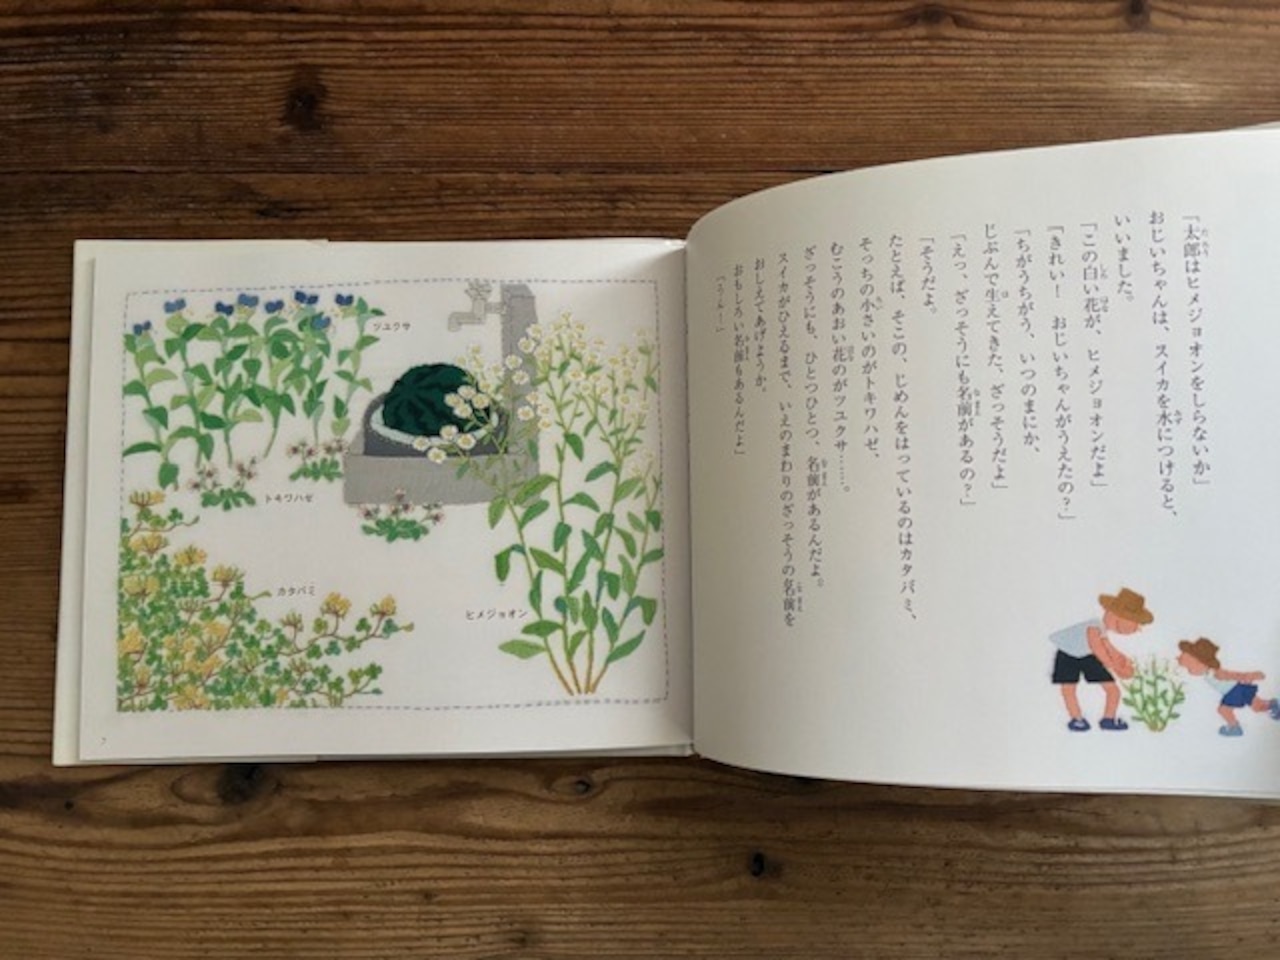 「太郎はヒメジョオンをしらないか」
おじいちゃんは、スイカを水につけると、
いいました。
「この白い花が、ヒメジョオンだよ」
「きれい！　おじいちゃんがうえたの？」
「ちがうちがう、いつのまにか、
じぶんで生えてきた、ざっそうだよ」
「えっ、ざっそうにも名前があるの？」
「そうだよ。
たとえば、そこの、じめんをはっているのはカタバミ、
そっちの小さいのがトキワハゼ、
むこうのあおい花のがツユクサ……。
ざっそうにも、ひとつひとつ、名前があるんだよ。
スイカがひえるまで、いえのまわりのざっそうの名前を
おしえてあげようか。
おもしろい名前もあるんだよ」
ツユクサ
トキワハゼ
カタバミ
ヒメジョオン
7